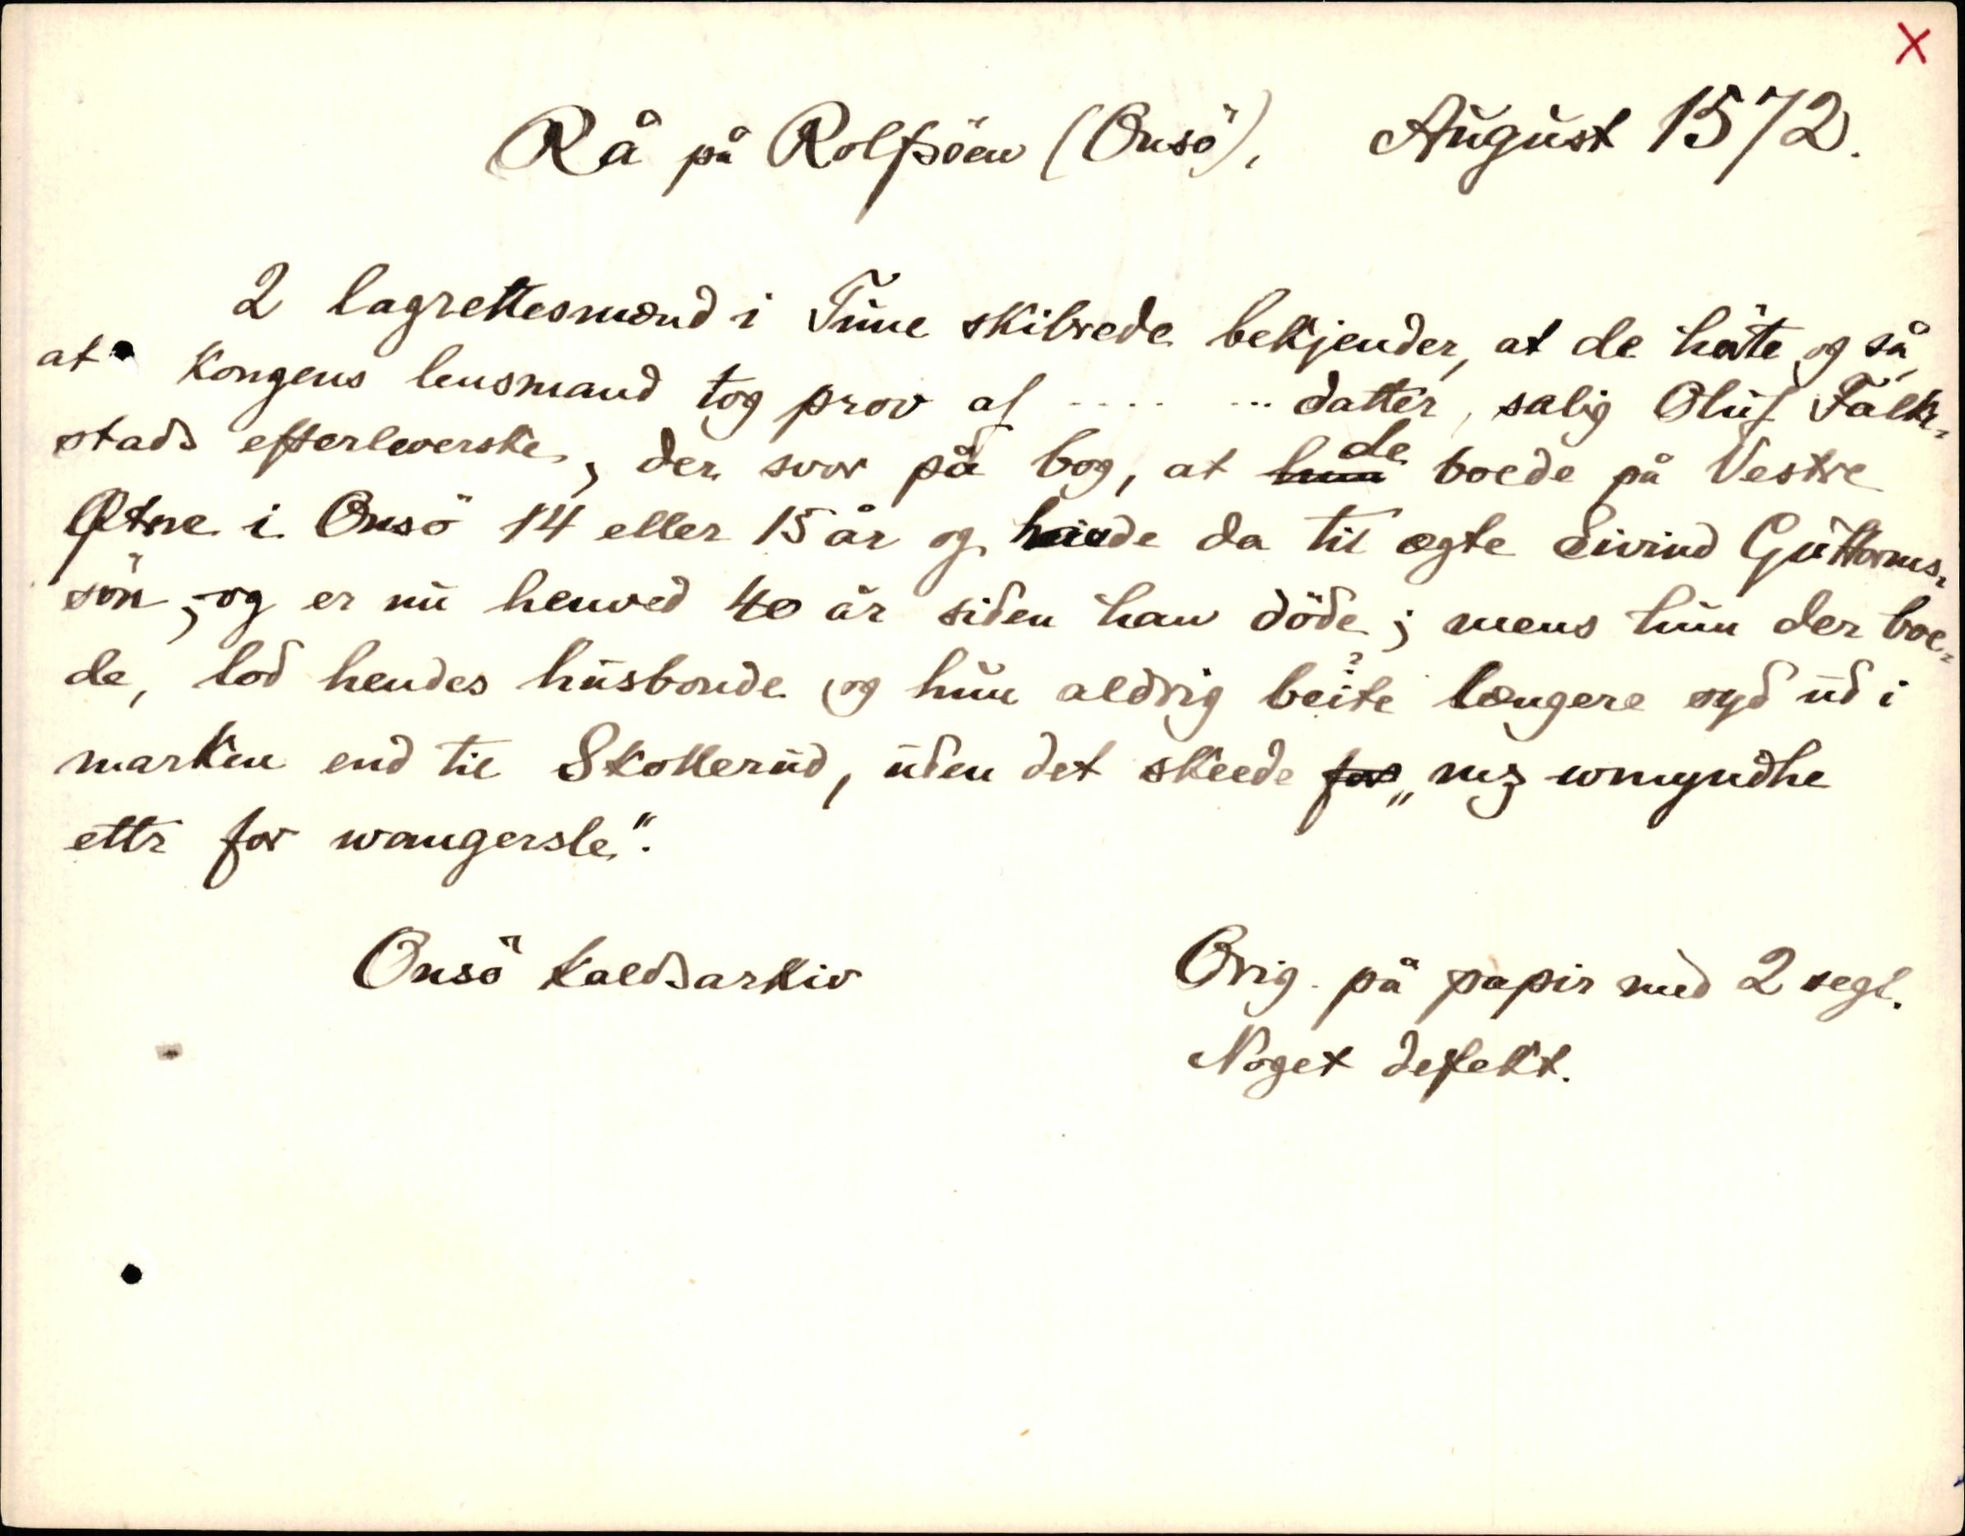 X
Rå på Rolfsöen (Onsö), August 1572.
2 lagrettesmænd i Tune skibrede bekjender, at de hörte og så,
at kongens lensmand tog prov af .... ... datter, salig Oluf Falk-
stads efterleverske, der svor på bog, at hun de boede på Vestre
i Onsö 14 eller 15 år og havde da til ægte Eivind Guttorms-
sön, og er nu henved 40 år siden han döde; mens hun der boe-
de, lod hendes husbonde og hun aldrig beite ? længere syd ud i
marken end til Skollerud, uden det skeede for „mz wmyndhe
ettr for wangersle".
Onsö kaldsarkiv Orig. på papir med 2 segl.
Noget defekt.